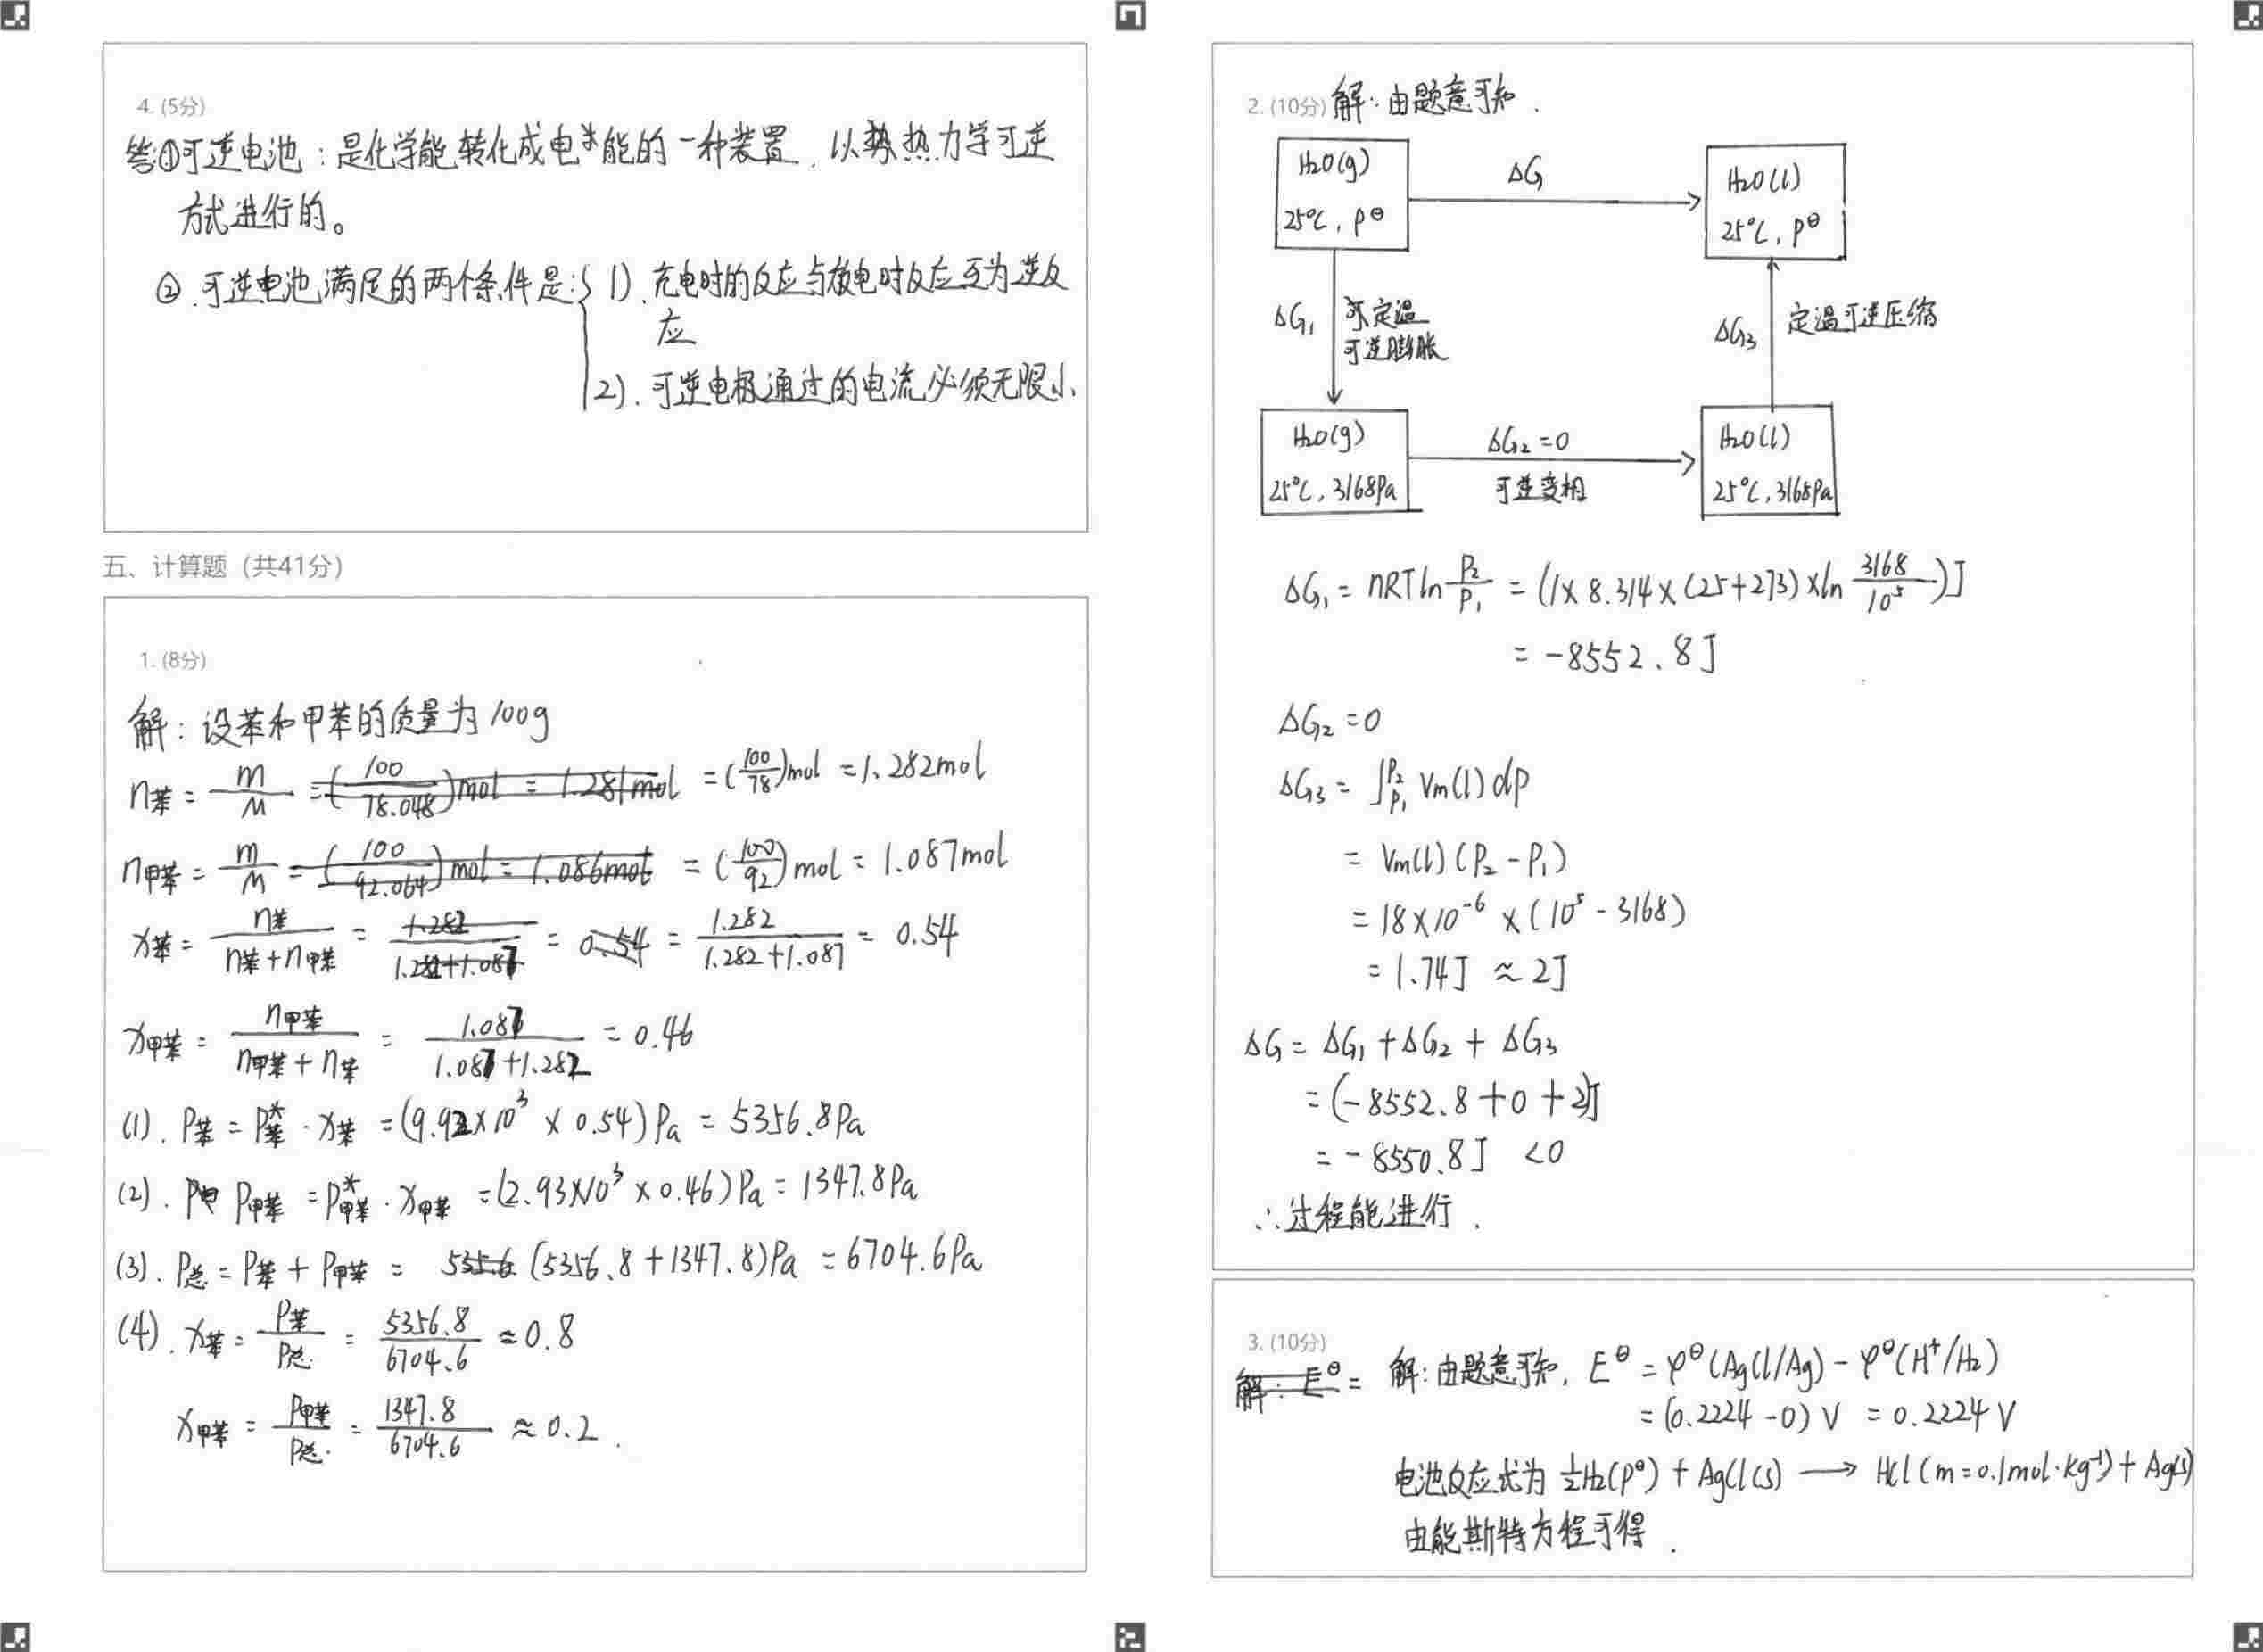 4. (5分)
答:①可逆电池：是化学能转化成电能的一种装置，以热力学可逆
方式进行的。
②.可逆电池满足的两个条件是:{ 1).充电时的反应与放电时反应互为逆反
应
2).可逆电极通过的电流必须无限小
五、计算题（共41分）
1. (8分)
解：设苯和甲苯的质量为100g
n苯 = m/M = (100/78.048)mol = 1.281mol = (100/78)mol = 1.282mol
n甲苯 = m/M = (100/92.064)mol = 1.086mol = (100/92)mol = 1.087mol
x苯 = n苯/(n苯+n甲苯) = 1.282/(1.282+1.087) = 0.54 = 1.282/(1.282+1.087) = 0.54
x甲苯 = n甲苯/(n甲苯+n苯) = 1.087/(1.087+1.282) = 0.46
(1). P苯 = P*苯 · x苯 = (9.92×10³ × 0.54)Pa = 5356.8Pa
(2). P甲苯 = P*甲苯 · x甲苯 = (2.93×10³ × 0.46)Pa = 1347.8Pa
(3). P总 = P苯 + P甲苯 = 535.6 (5356.8+1347.8)Pa = 6704.6Pa
(4). x苯 = P苯/P总 = 5356.8/6704.6 ≈ 0.8
x甲苯 = P甲苯/P总 = 1347.8/6704.6 ≈ 0.2.
2. (10分) 解：由题意可知.
H₂O(g)
25℃, P⊖
ΔG
H₂O(l)
25℃, P⊖
ΔG₁
定温
可逆膨胀
ΔG₃
定温可逆压缩
H₂O(g)
25℃, 3168Pa
ΔG₂=0
可逆变相
H₂O(l)
25℃, 3168Pa
ΔG₁ = nRT ln P₂/P₁ = (1×8.314×(25+273)×ln 3168/10⁵)J
= -8552.8J
ΔG₂ = 0
ΔG₃ = ∫P₁P₂ Vm(l) dp
= Vm(l)(P₂-P₁)
= 18×10⁻⁶ × (10⁵-3168)
= 1.74J ≈ 2J
ΔG = ΔG₁+ΔG₂+ΔG₃
= (-8552.8+0+2)J
= -8550.8J <0
∴过程能进行.
3. (10分)
解: E⊖ = 解:由题意可知, E⊖ = φ⊖(AgCl/Ag) - φ⊖(H⁺/H₂)
= (0.2224-0)V = 0.2224V
电池反应式为 ½H₂(P⊖) + AgCl(s) → HCl(m=0.1mol·kg⁻¹) + Ag(s)
由能斯特方程可得.